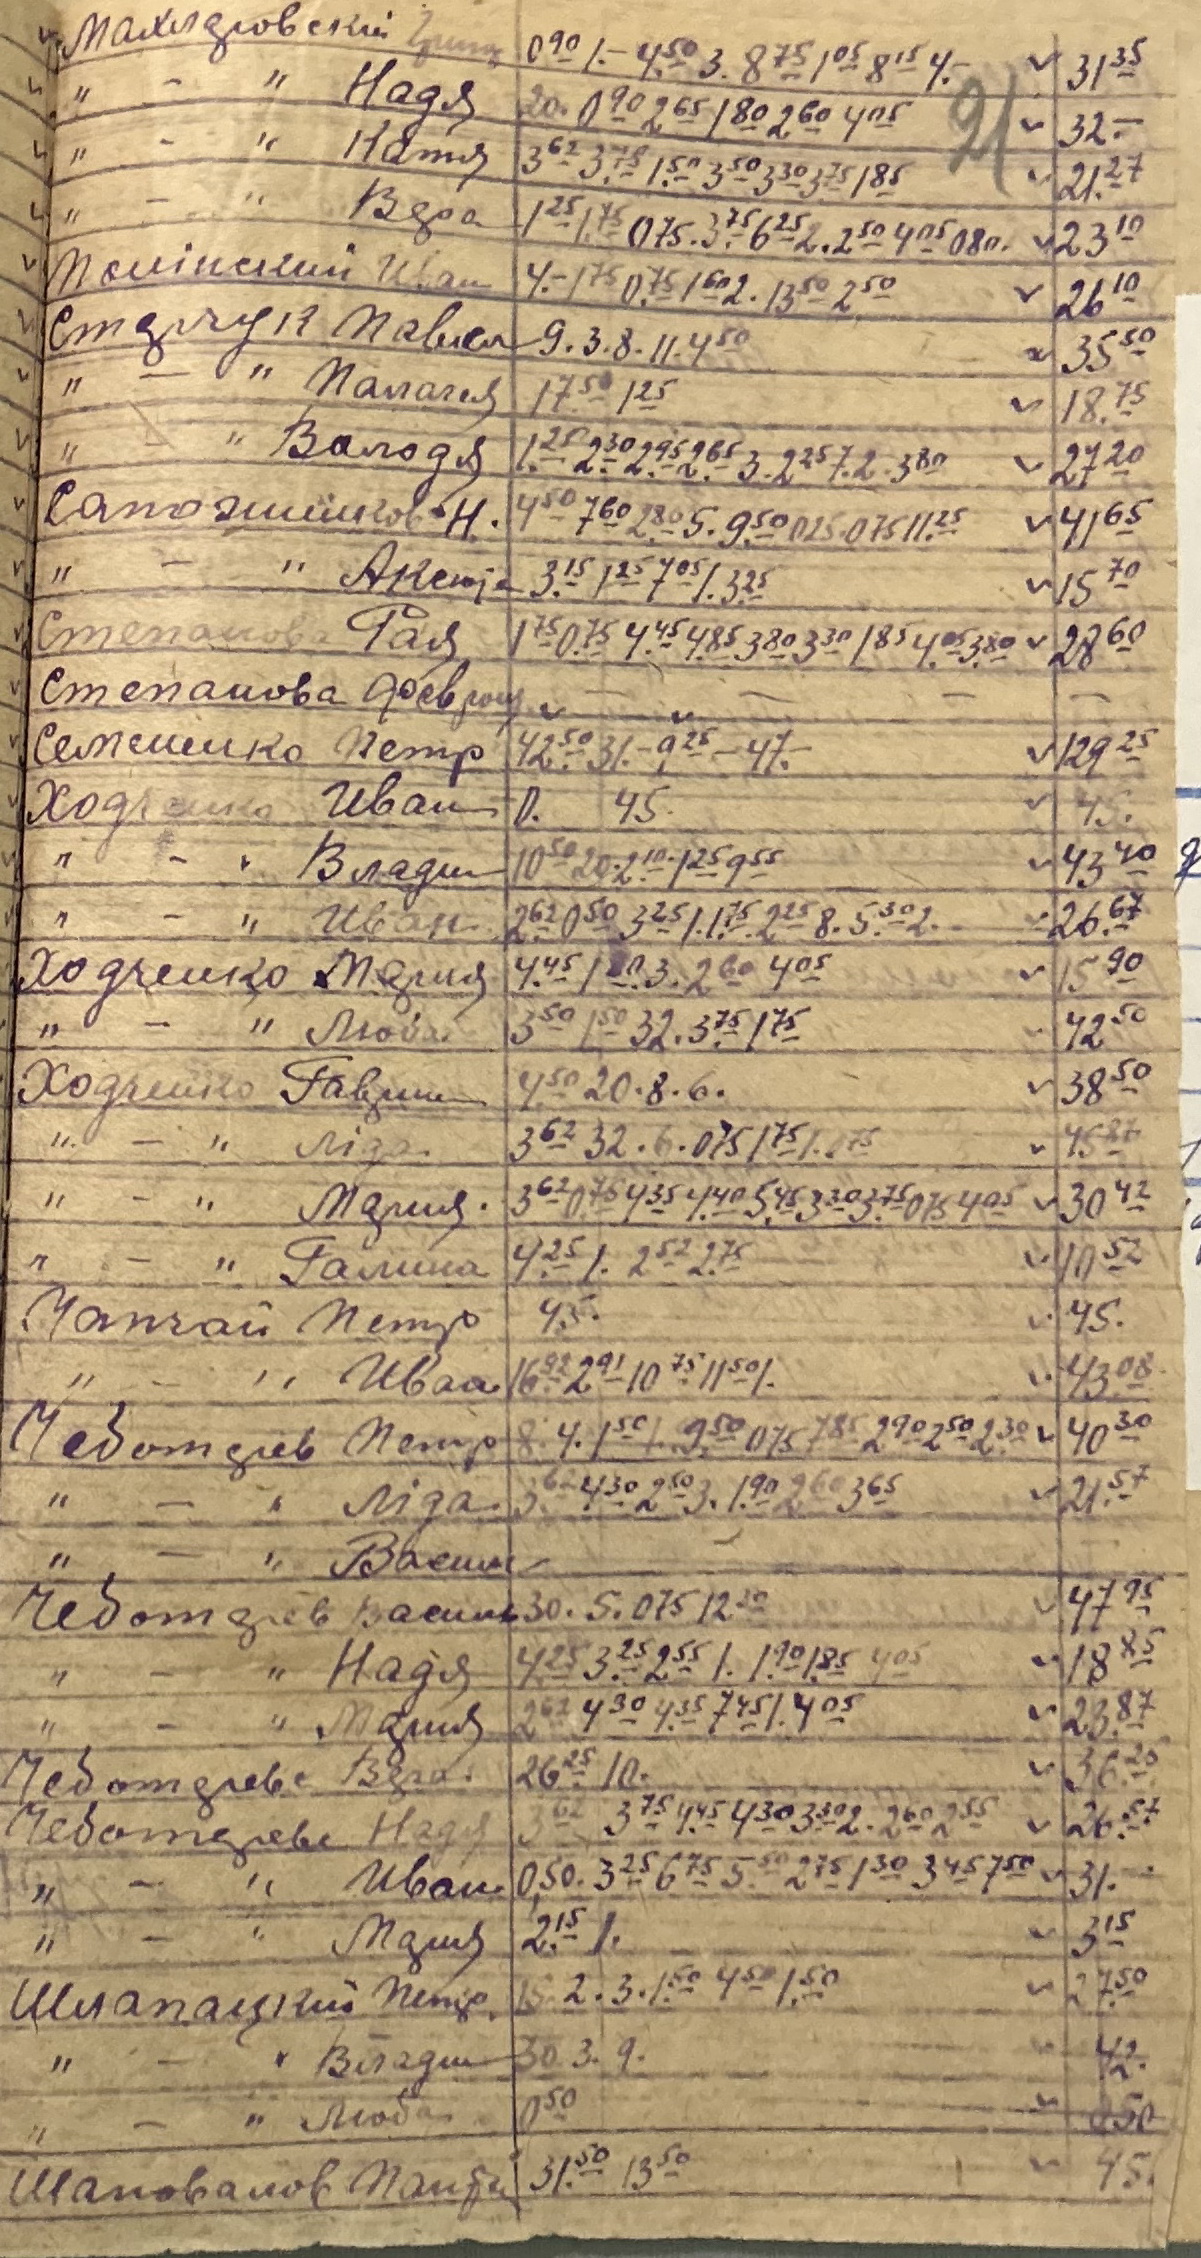 Махляровский 0 90 1.– 4.50 3. 8 75 1 05 8 15 4.– ✓ 31 35
" – " Надя 20. 0 90 2 65 1 80 2 60 4 05 ✓ 32.–
" – " Катя 3 62 3.75 1.50 3 50 3 30 3 75 1 85 ✓ 21.27
" – " Вера 1 25 1.75 075. 3.75 6 25 2. 2 50 4 05 080. ✓ 23 10
Иван 4.– 1 75 0.75 1 60 2. 13 50 2 50 ✓ 26 10
Старчук Павел 9. 3. 8. 11. 4 50 35 50
" – " Палагея 17.50 1 25 ✓ 18.75
" " Володя 1.20 2 30 2.95 2.65 3. 2 25 7. 2. 3 80 ✓ 27 20
Сапожников Н. 4 50 7 60 2 80 5. 9.50 025. 075 11.25 ✓ 41 65
" – " Аксенія 3.15 1 25 7 05 1. 3.25 ✓ 15 70
Степанова Галя 1 75 0.75 4.45 4.85 3 80 3 30 1 85 4.05 3.80 ✓ 28 60
Степанова Феврония – – – –
Семененко Петр 42.50 31.– 9 25 – 47.– ✓ 129 25
Ходченко Иван 0. 45. ✓ 45.
" – " Владим 10 50 20. 2 10 1 25 9 55 ✓ 43 40
" – " Иван 2 62 0 50 3 25 1. 1.75 2 25 8. 5.30 2. 26.67
Ходченко Мария 4.45 1 80. 3. 2 60 4 05 ✓ 15 90
" – " Люба 3 50 1 50 32. 3.75 1 75 ✓ 42 50
Ходченко Гаврил 4 50 20. 8. 6. ✓ 38 50
" – " Ліда 3 62 32. 6. 075 1 75 1. 075 ✓ 45 87
" – " Мария. 3 62 0.75 4 35 4.40 5.45 3 30 3.75 075 4 05 ✓ 30 42
" – " Галина 4.25 1. 2 52 2.75 ✓ 10 52
Чапчай Петр 45. ✓ 45.
" – " Иван 16.92 2 91 10 75 11 50 1. ✓ 43.08
Чеботарев Петр 8. 4. 1 50 1. 9.50 075 7 85 2 90 2 50 2.30 ✓ 40 30
" – " Ліда 3.62 4 30 2 50 3. 1.90 2 60 3 65 ✓ 21.57
" – " Васил –
Чеботарев Василь 30. 5. 075 12 20 ✓ 47 95
" – " Надя 4.25 3.25 2 55 1. 1 90 1.85 4 05 ✓ 18 85
" – " Мария 2 62 4 30 4.35 7 45 1. 4 05 ✓ 23.87
Чеботарева Вера. 26 25 10. ✓ 36.25
Чеботарева Надя 3 62 3 75 4.45 4 30 3 30 2. 2 60 2 55 ✓ 26.57
" – " Иван 0,50. 3 25 6 75 5 50 2 75 1 30 3 45 7 50 ✓ 31.–
" – " Мария 2.15 1. ✓ 3 15
Шлапацкий Петр. 15. 2. 3. 1.50 4 50 1.50 ✓ 27.50
" – " Владим 30 3. 9. ✓ 42.
" – " Люба 0 50 ✓ 0 50
Шаповалов 31.50 13 50 ✓ 45.